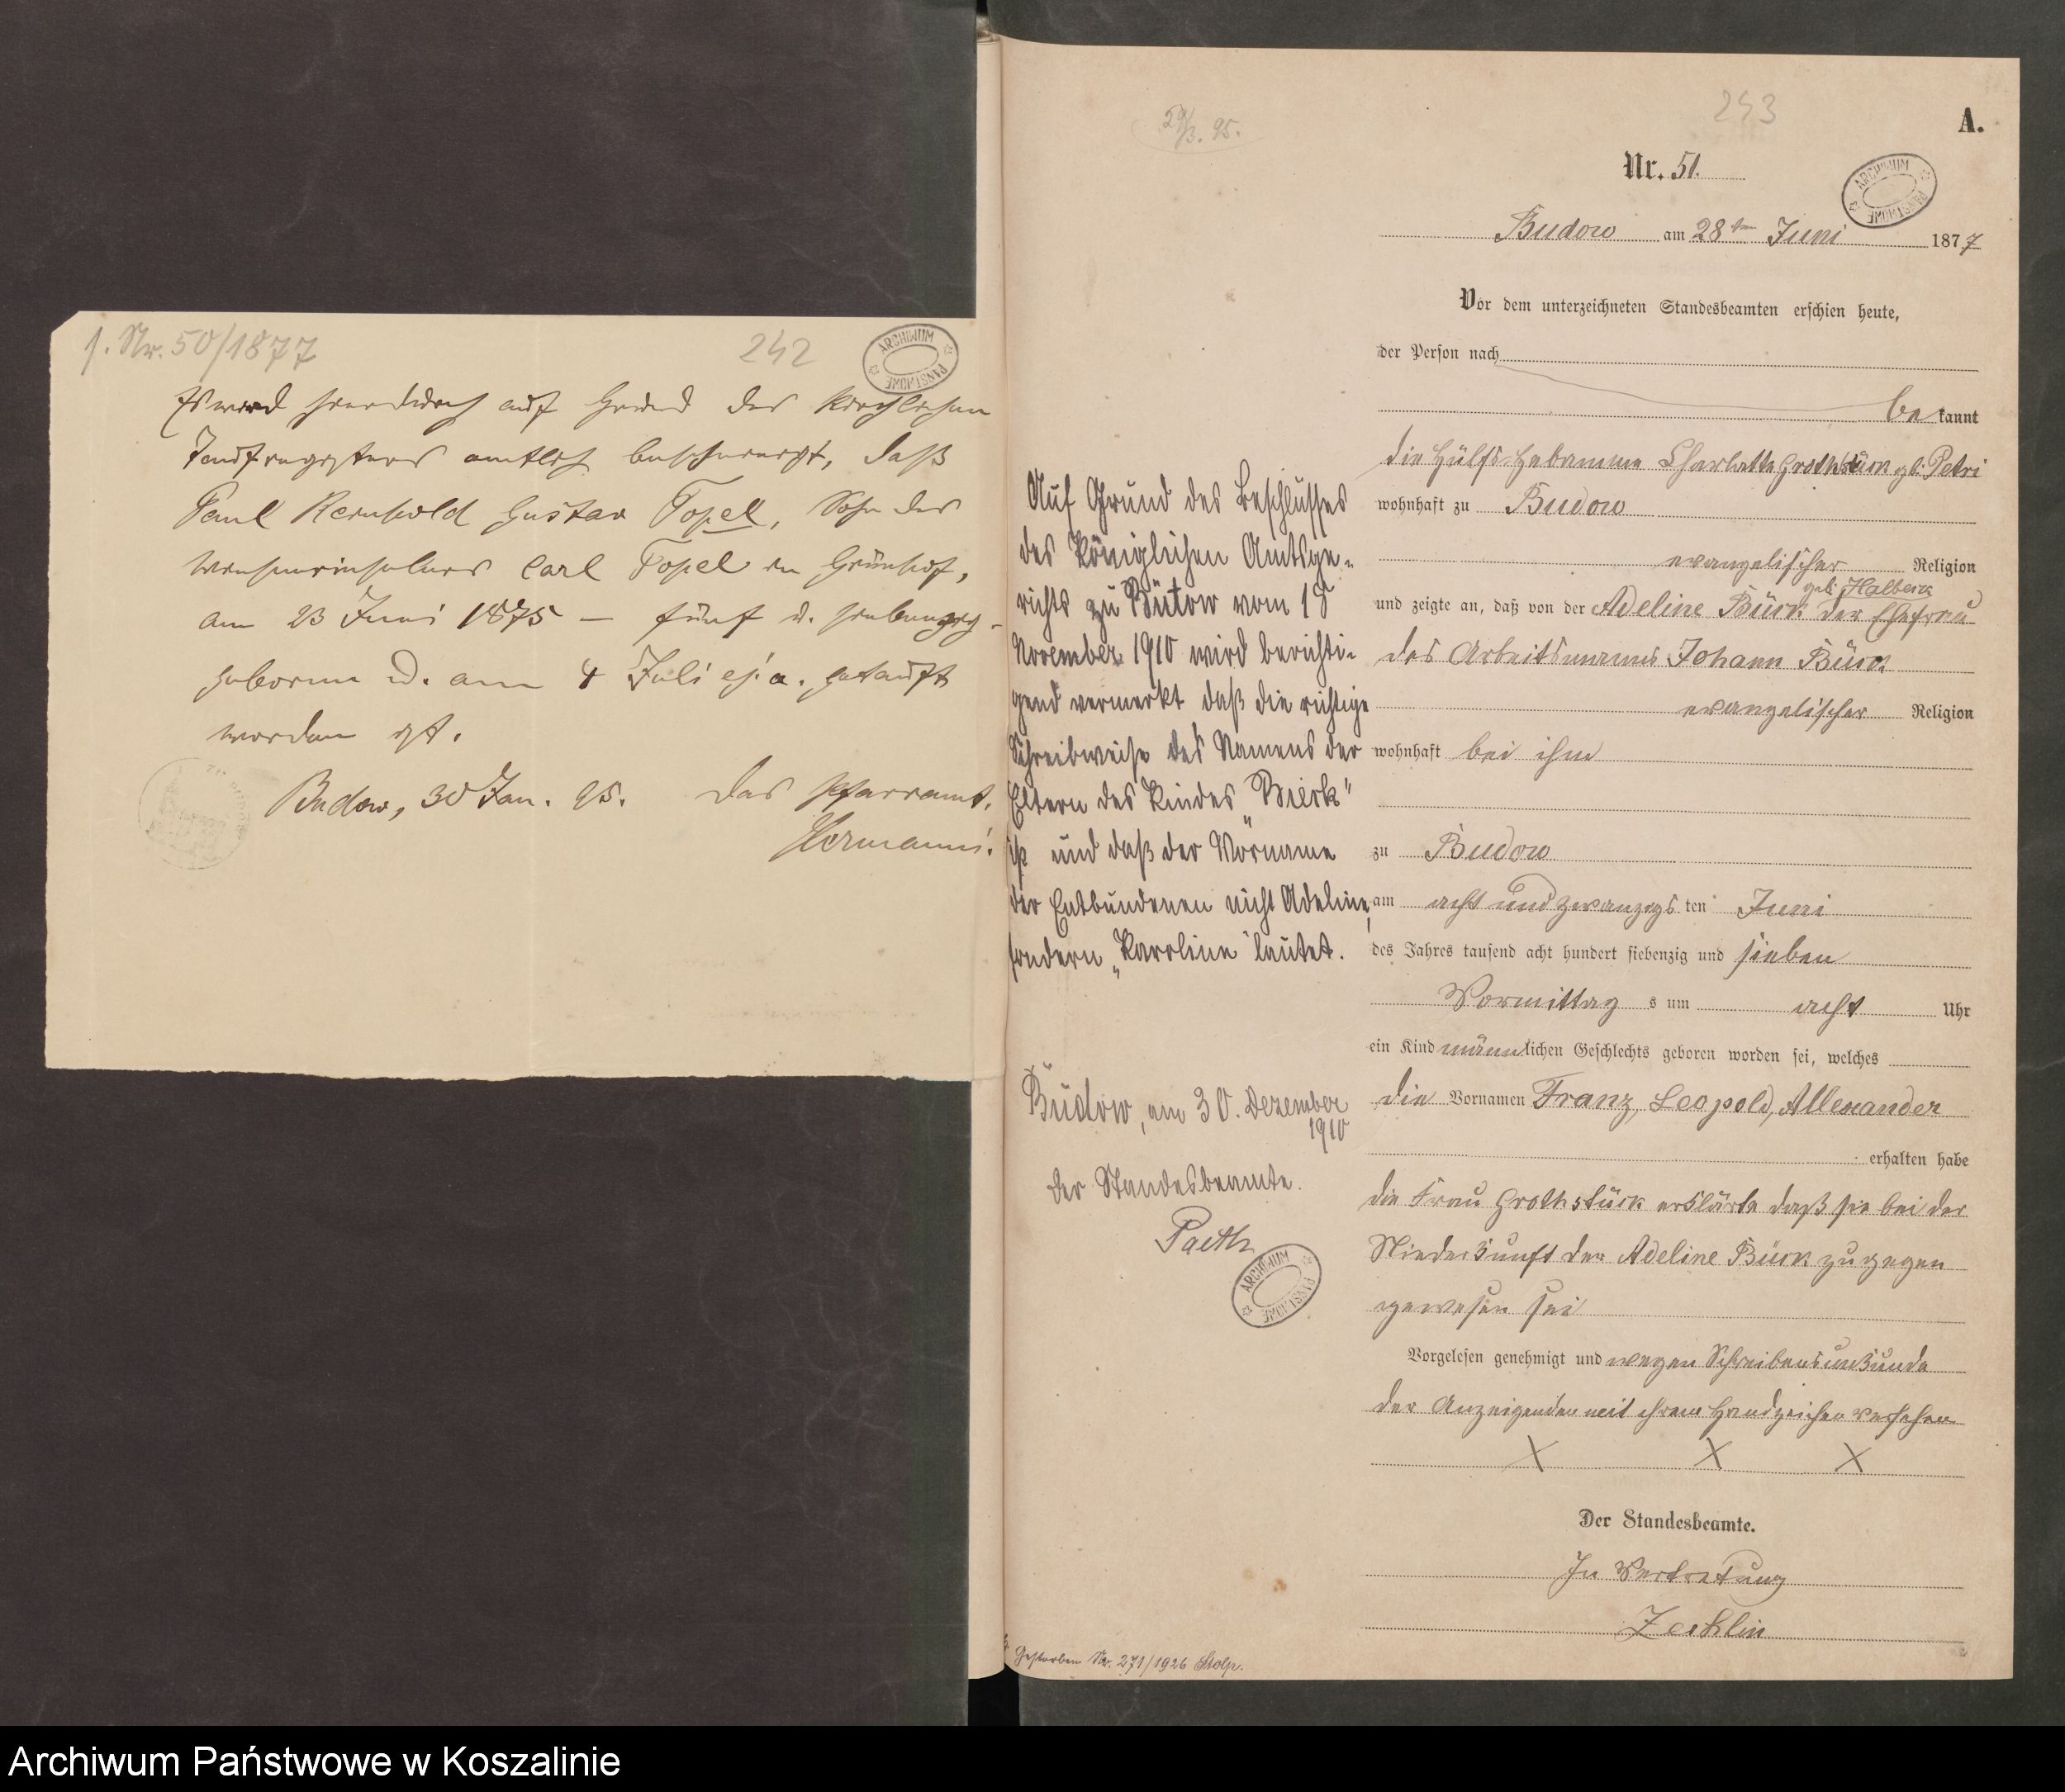 f. Nr. 50/1877
242
ARCHIWUM PAŃSTWOWE
Es wird hierdurch auf Grund des kirchlichen
Taufregisters amtlich bescheinigt, daß
Paul Reinhold Gustav Topel, Sohn des
Carl Topel in Grünhof,
am 23 Juni 1875 — fünf u. siebenzig –
geboren u. am 4 Juli ej. a. getauft
worden ist.
Budow, 30 Jan. 95. Das Pfarramt.
Hermann
29/3. 95.
243
A.
Nr. 51.
ARCHIWUM PAŃSTWOWE
Budow am 28ten Juni 1877
Vor dem unterzeichneten Standesbeamten erschien heute,
der Person nach
bekannt
die Hülfs-Hebamme Charlotte Grothstück gb. Petri
wohnhaft zu Budow
evangelischer Religion
geb. Halbeck
und zeigte an, daß von der Adeline Bürk der Ehefrau
des Arbeitsmanns Johann Bürk
evangelischer Religion
wohnhaft bei ihm
zu Budow
am acht und zwanzigsten Juni
des Jahres tausend acht hundert siebenzig und sieben
Vormittags um acht Uhr
ein Kind männlichen Geschlechts geboren worden sei, welches
die Vornamen Franz, Leopold, Allexander
erhalten habe
die Frau Grothstück erklärte daß sie bei der
Niederkunft der Adeline Bürk zugegen
gewesen sei
Vorgelesen genehmigt und wegen Schreibensunkunde
der Anzeigenden mit ihrem Handzeichen versehen
X X X
Der Standesbeamte.
In Vertretung
Zechlin
Auf Grund des Beschlusses
des Königlichen Amtsge-
richts zu Bütow vom 18
November 1910 wird berichti-
gend vermerkt daß die richtige
Schreibweise des Namens der
Eltern des Kindes „Bierk"
ist und daß der Vorname
der Entbundenen nicht Adeline,
sondern „Karoline" lautet.
Budow, am 30. Dezember
1910
Der Standesbeamte.
Paeth
ARCHIWUM PAŃSTWOWE
Gestorben Nr. 271/1926 Stolp.
Archiwum Państwowe w Koszalinie